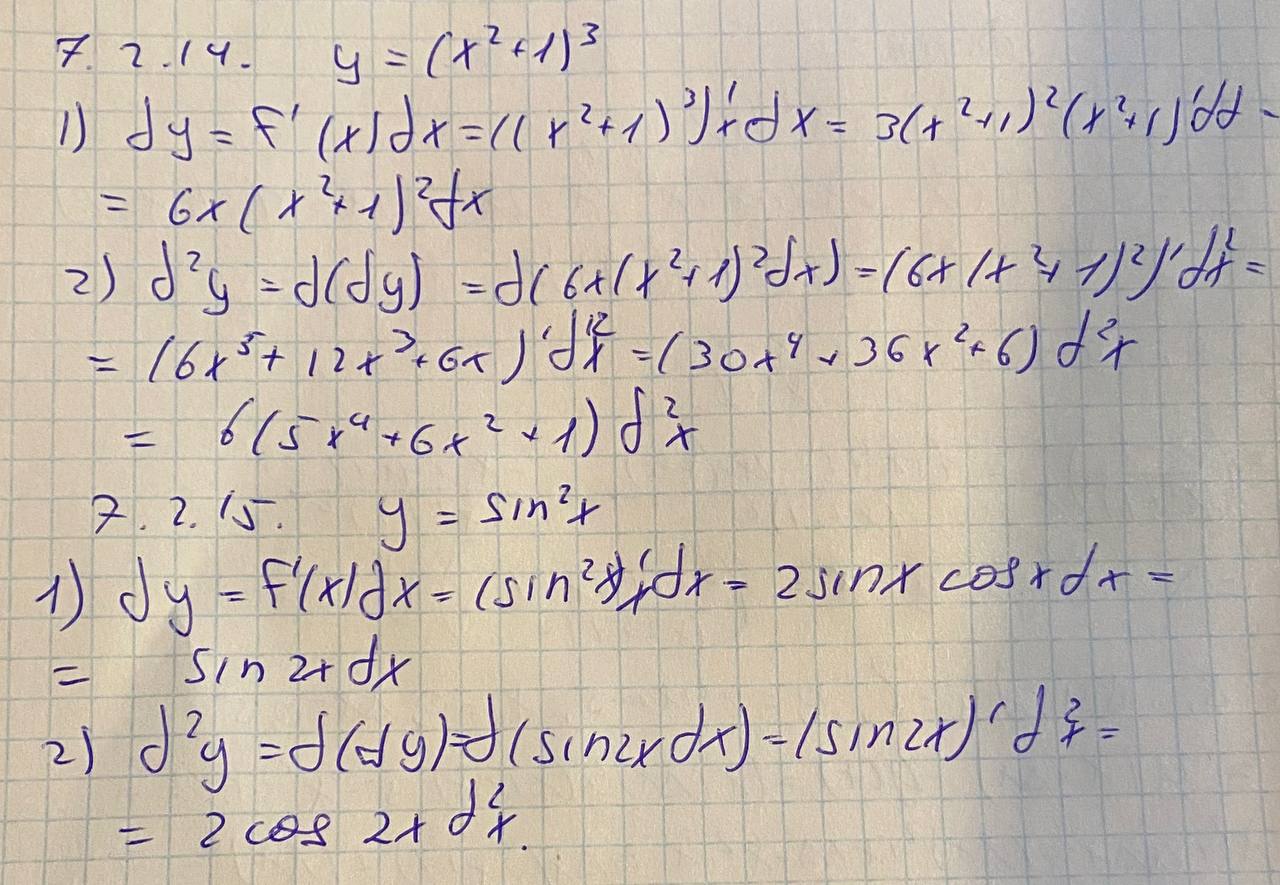 7.2.14. y = (x²+1)³
1) dy = f'(x)dx = ((x²+1)³)'ₓdx = 3(x²+1)²(x²+1)'
= 6x(x²+1)²dx
2) d²y = d(dy) = d(6x(x²+1)²dx) = (6x(x²+1)²)'d²x =
= (6x⁵+12x³+6x)'d²x = (30x⁴+36x²+6)d²x
= 6(5x⁴+6x²+1)d²x
7.2.15. y = sin²x
1) dy = f'(x)dx = (sin²x)'ₓdx = 2sinx cosxdx =
= sin2xdx
2) d²y = d(dy) = d(sin2xdx) = (sin2x)'d²x =
= 2cos2xd²x.